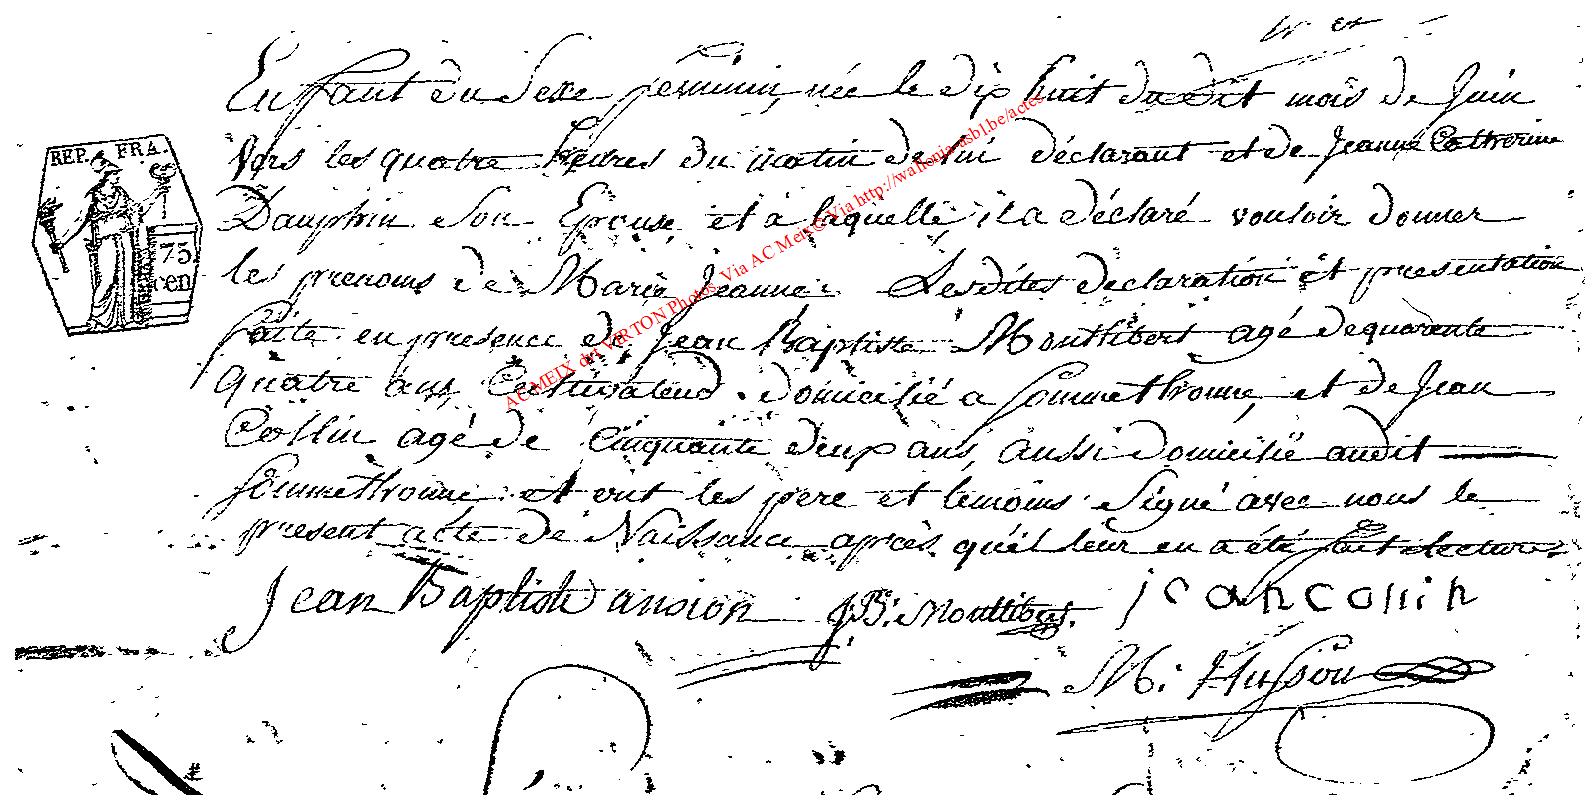 Enfant du Sexe feminin, née le dix huit dudit mois de Juin
Vers les quatre heures du matin de lui déclarant et de Jeanne Catherine
Dauphin son Epouse, et à laquelle, il a déclaré vouloir donner
les prenoms de Marie Jeanne. Lesdites declaration et presentation
faite en presence de Jean Baptiste Montlibert agé de quarante
quatre ans, Cultivateur domicilié a Sommethonne, et de Jean
Collin agé de Cinquante deux ans, aussi domicilié audit
Sommethonne et ont les pere et temoins Signé avec nous le
present acte de Naissance après qu'el leur en a été fait lecture
Jean Baptiste ansion J:B: Montlibert. jean colin
M: Husson
REP. FRA.
75
cen
AC MEIX dvt VIRTON Photos Via AC Meix Via http://wallonia-asbl.be/actes